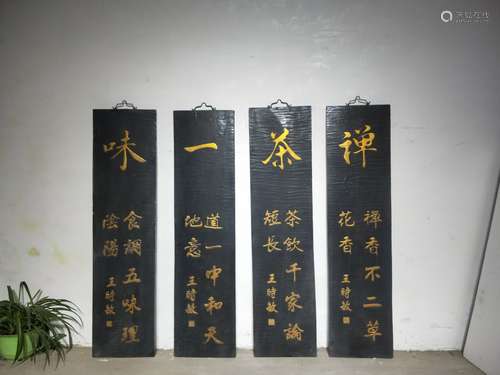 禅
禪香不二草
花香
王時敏
茶
茶飲千家論
短長
王時敏
一
道一中和天
地意
王時敏
味
食調五味理
陰陽
王時敏